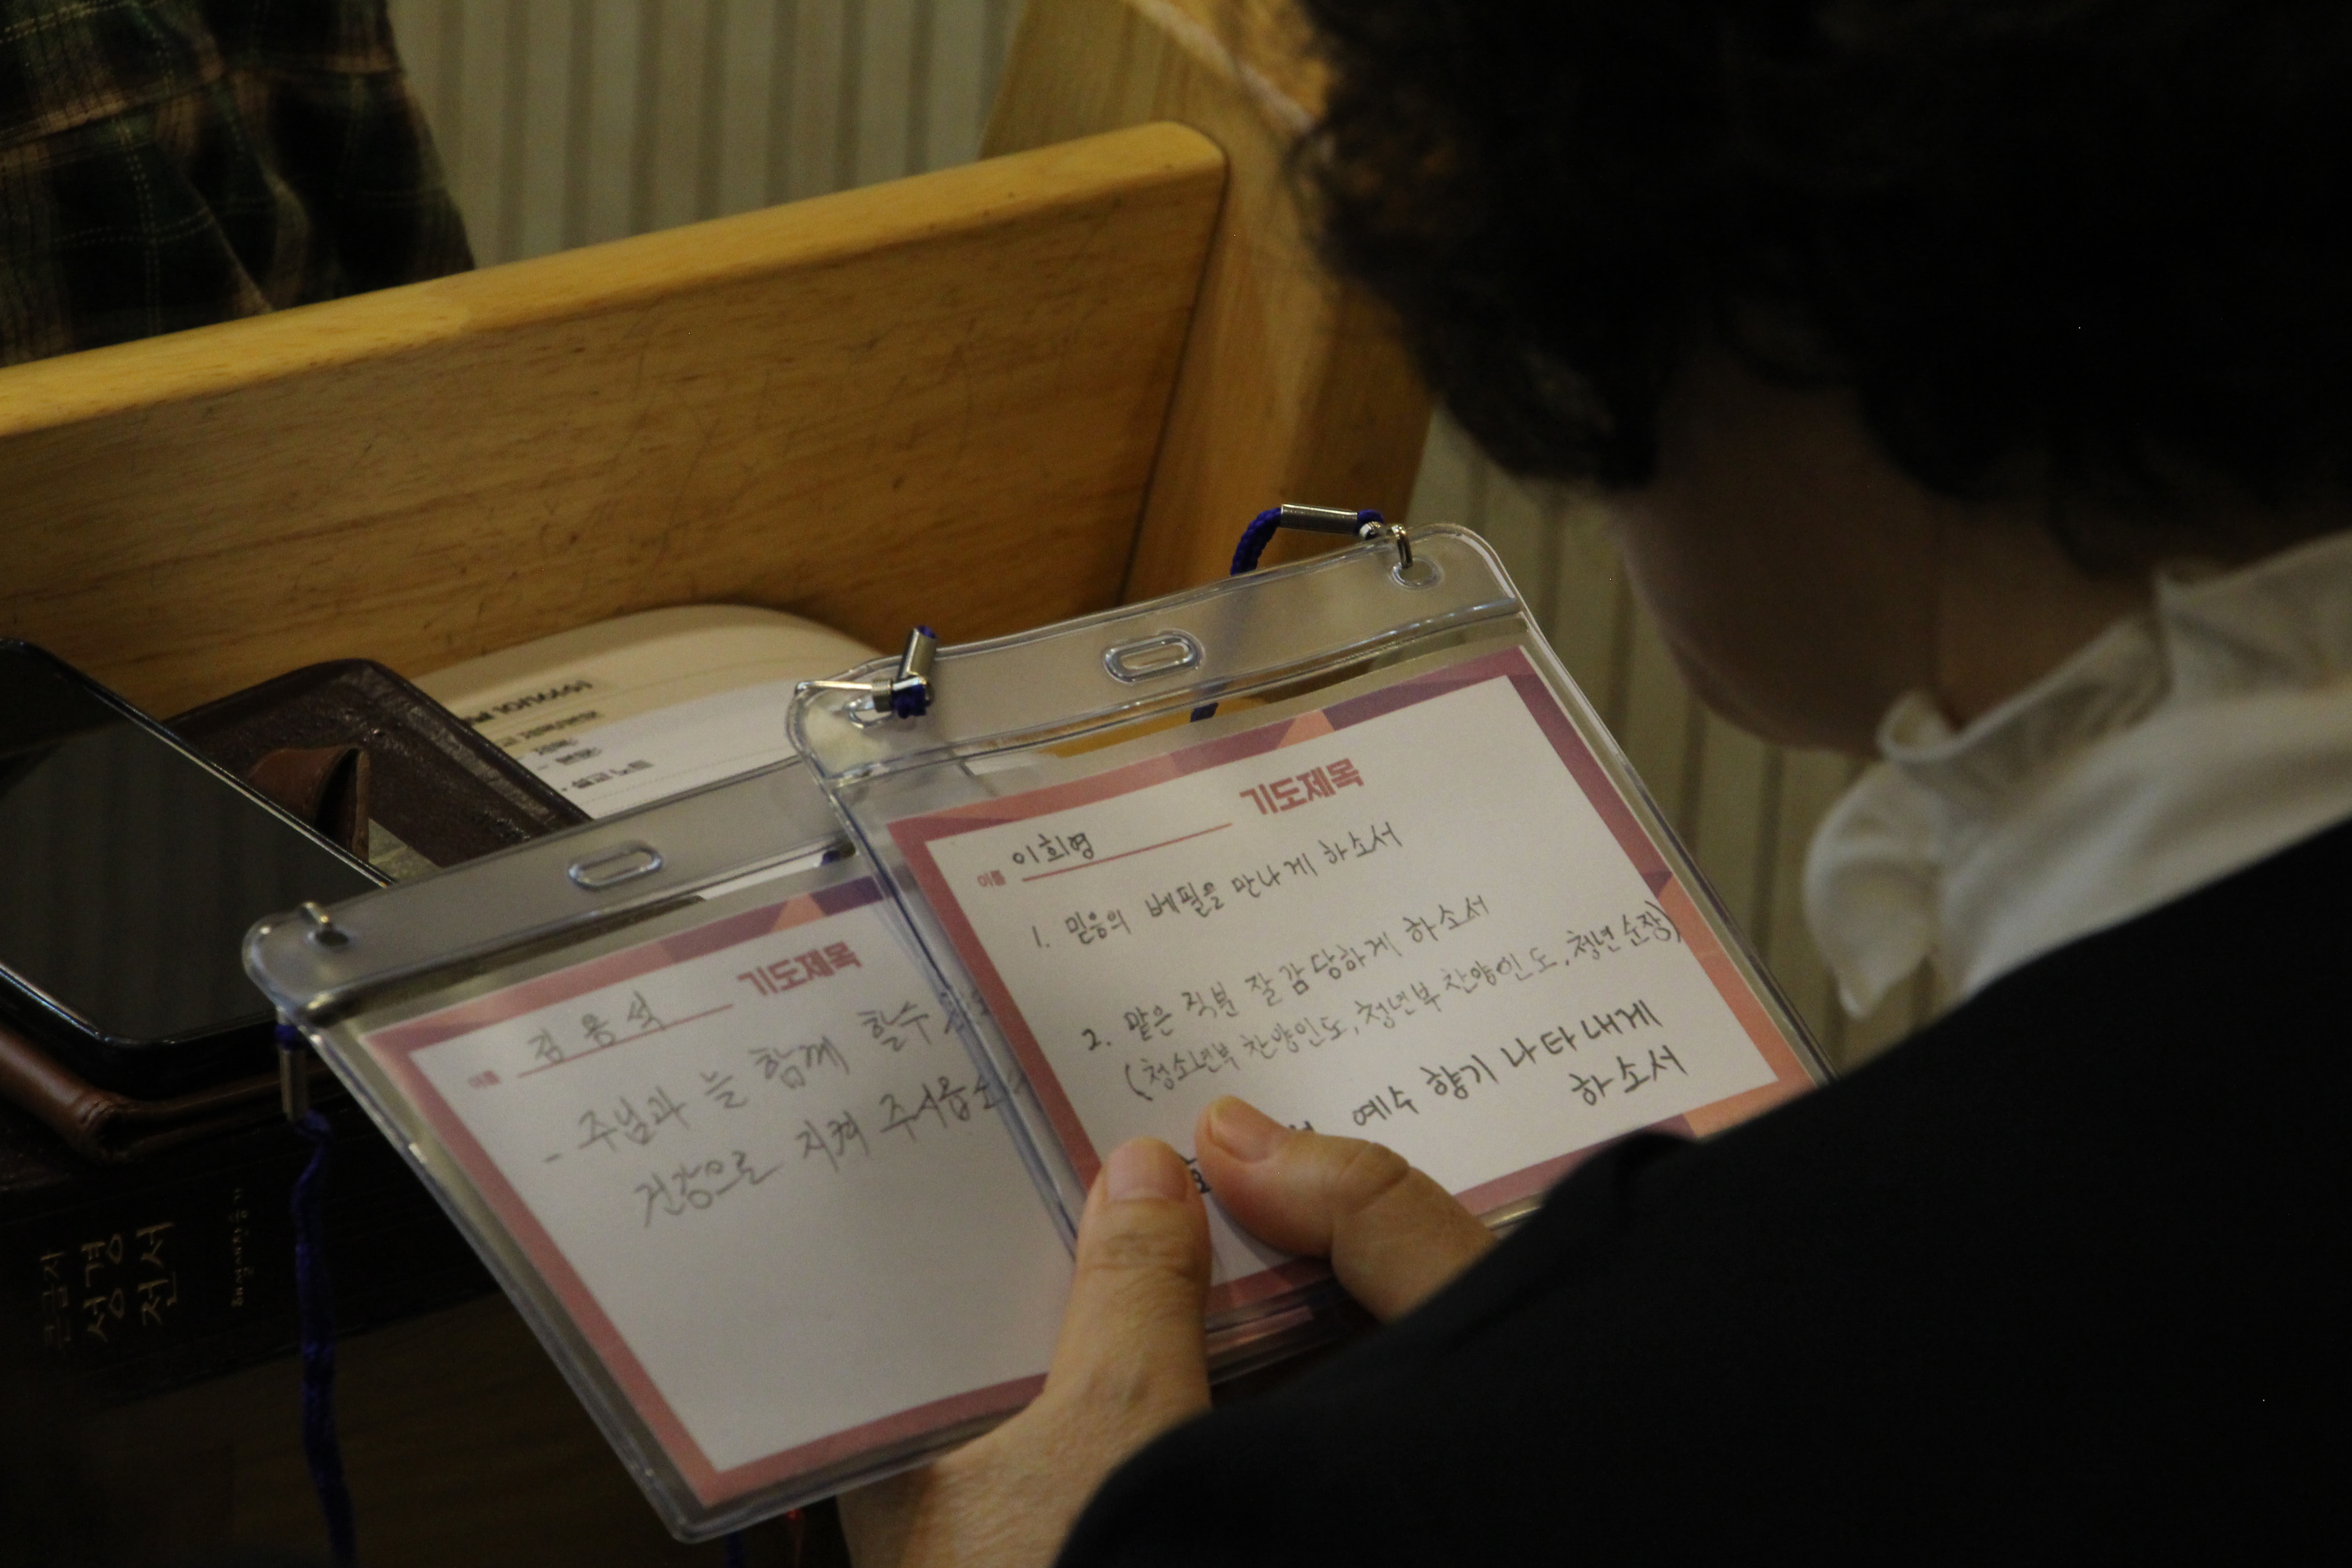 기도제목
이름 이희영
1. 믿음의 베필을 만나게 하소서
2. 맡은 직분 잘 감당하게 하소서
(청소년부 찬양인도, 청년부 찬양인도, 청년 순장)
예수 향기 나타내게
하소서
기도제목
이름 김용석
- 주님과 늘 함께 할수
건강으로 지켜 주시옵소
- 설교 노트
큰글자
성경
전서